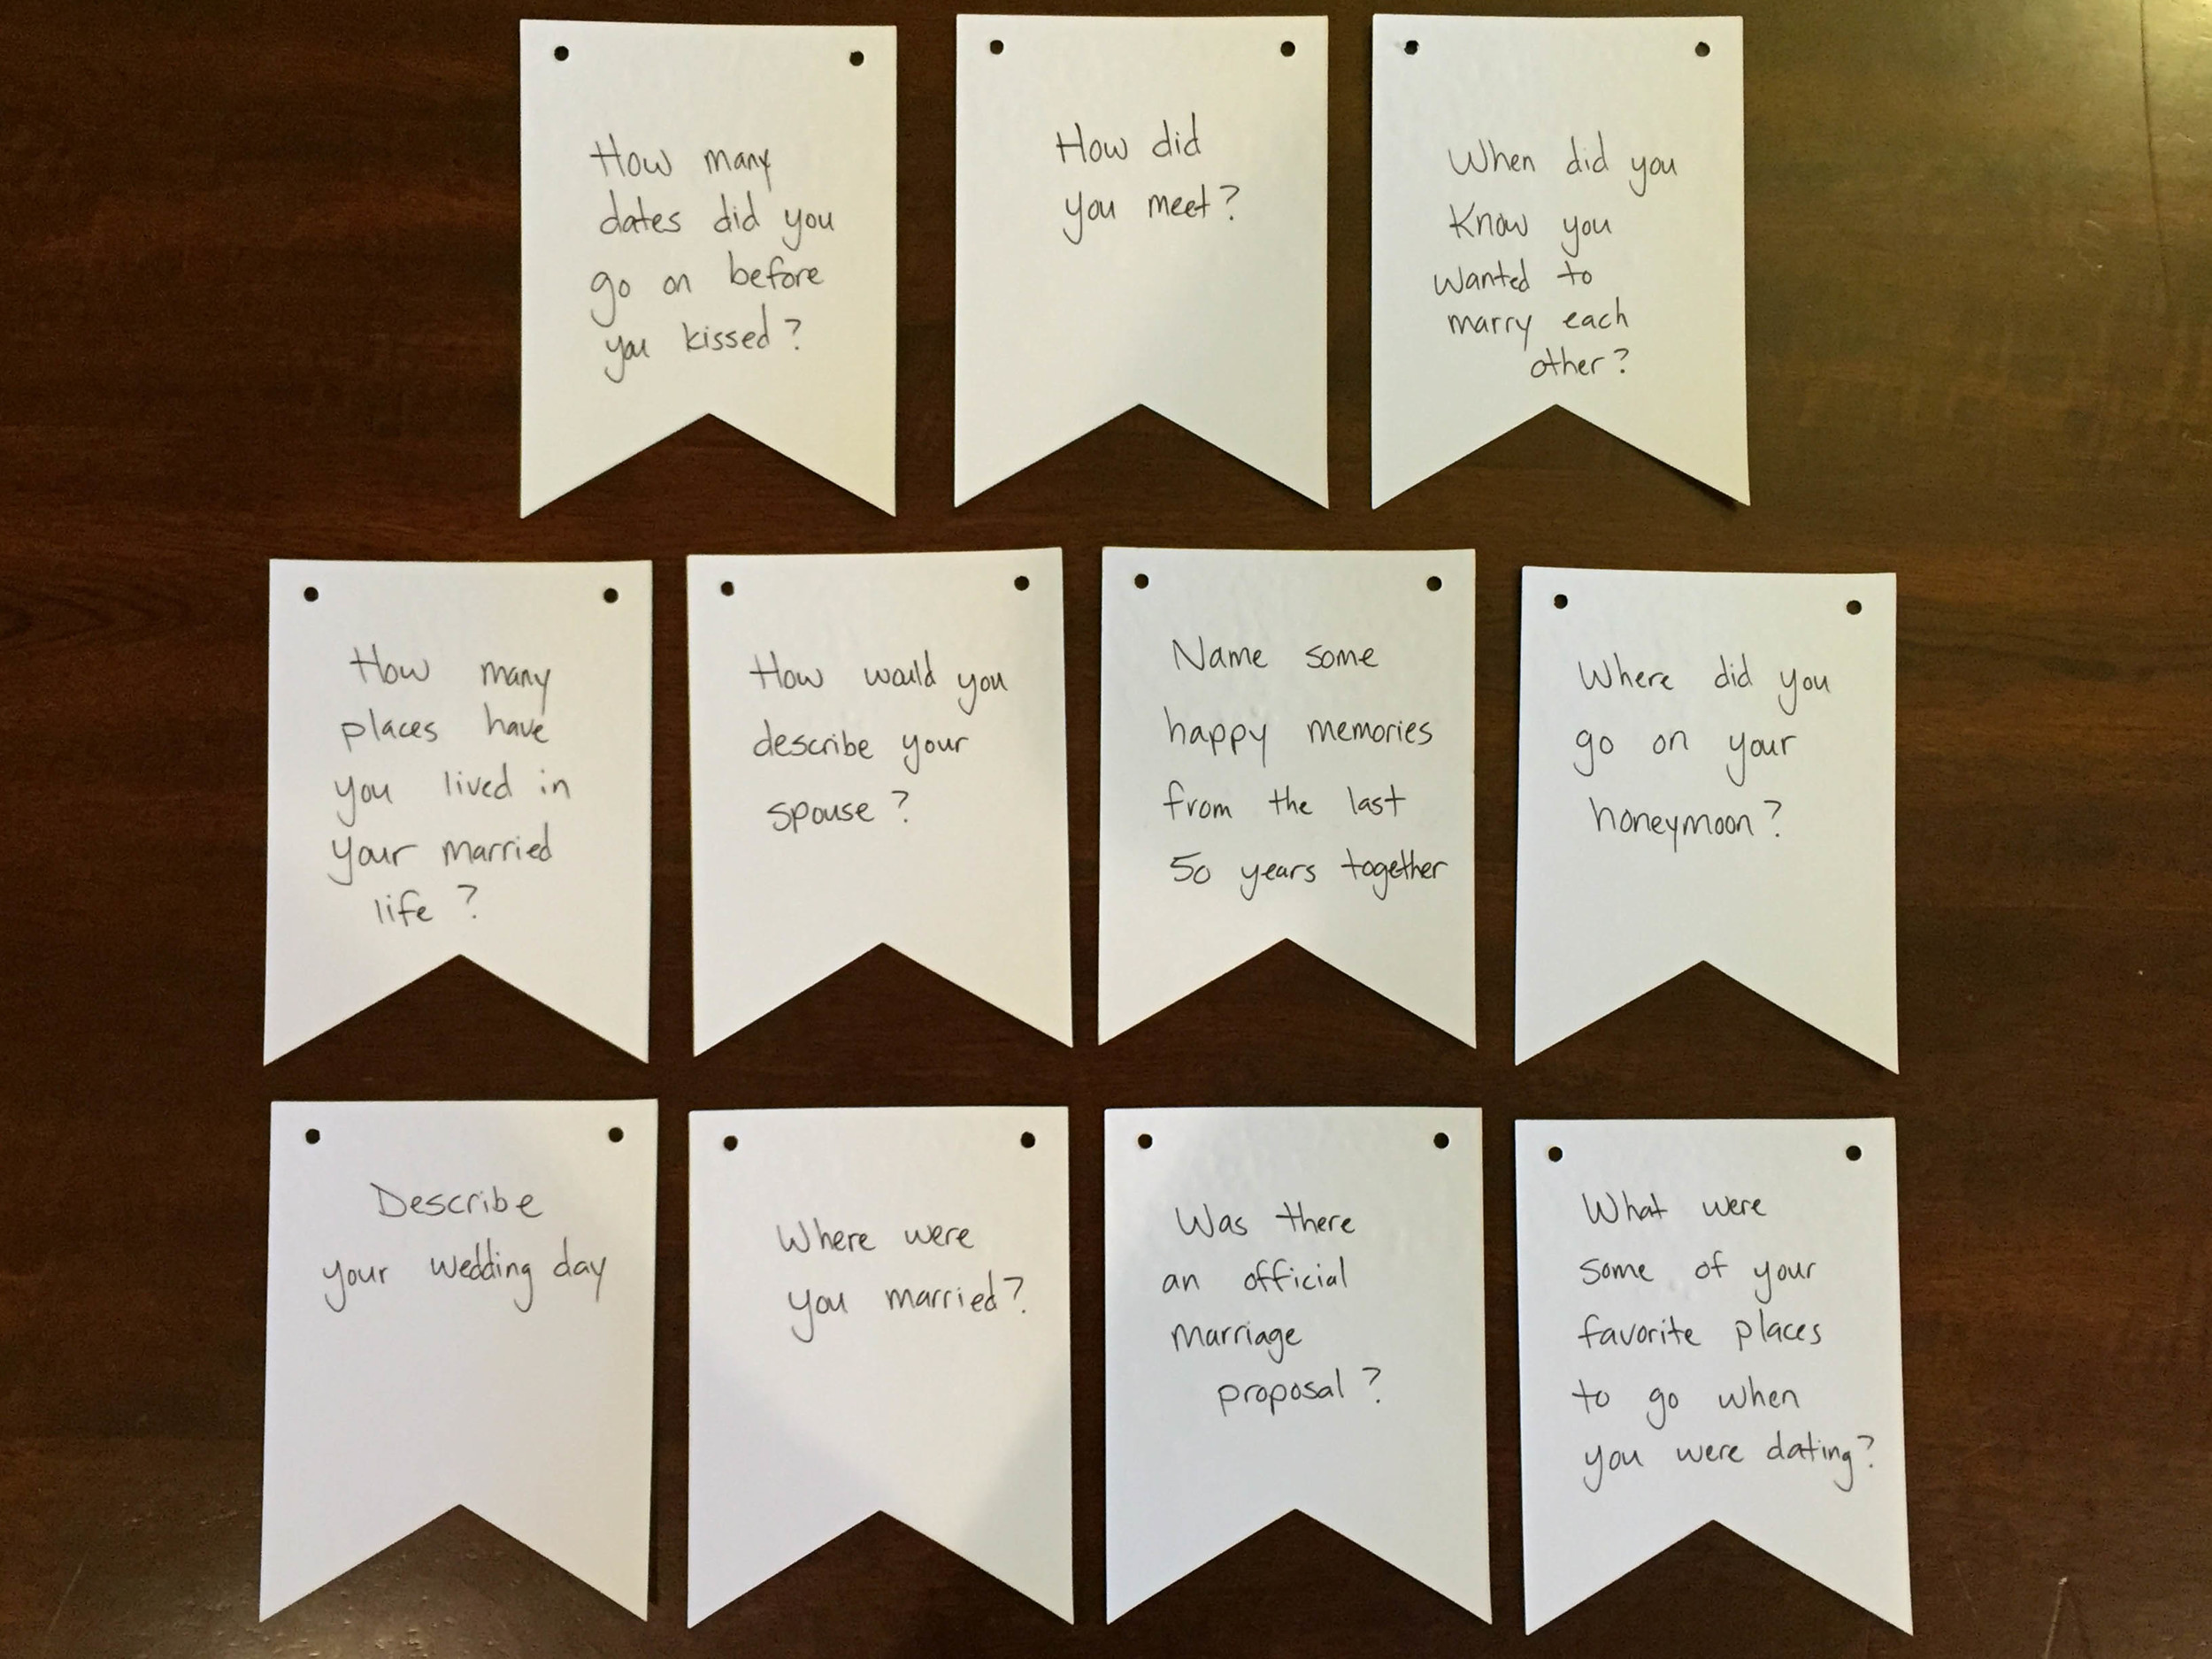 How many
dates did you
go on before
you kissed?
How did
you meet?
When did you
Know you
wanted to
marry each
other?
How many
places have
you lived in
your married
life?
How would you
describe your
spouse?
Name some
happy memories
from the last
50 years together
Where did you
go on your
honeymoon?
Describe
your wedding day
Where were
you married?
Was there
an official
marriage
proposal?
What were
some of your
favorite places
to go when
you were dating?